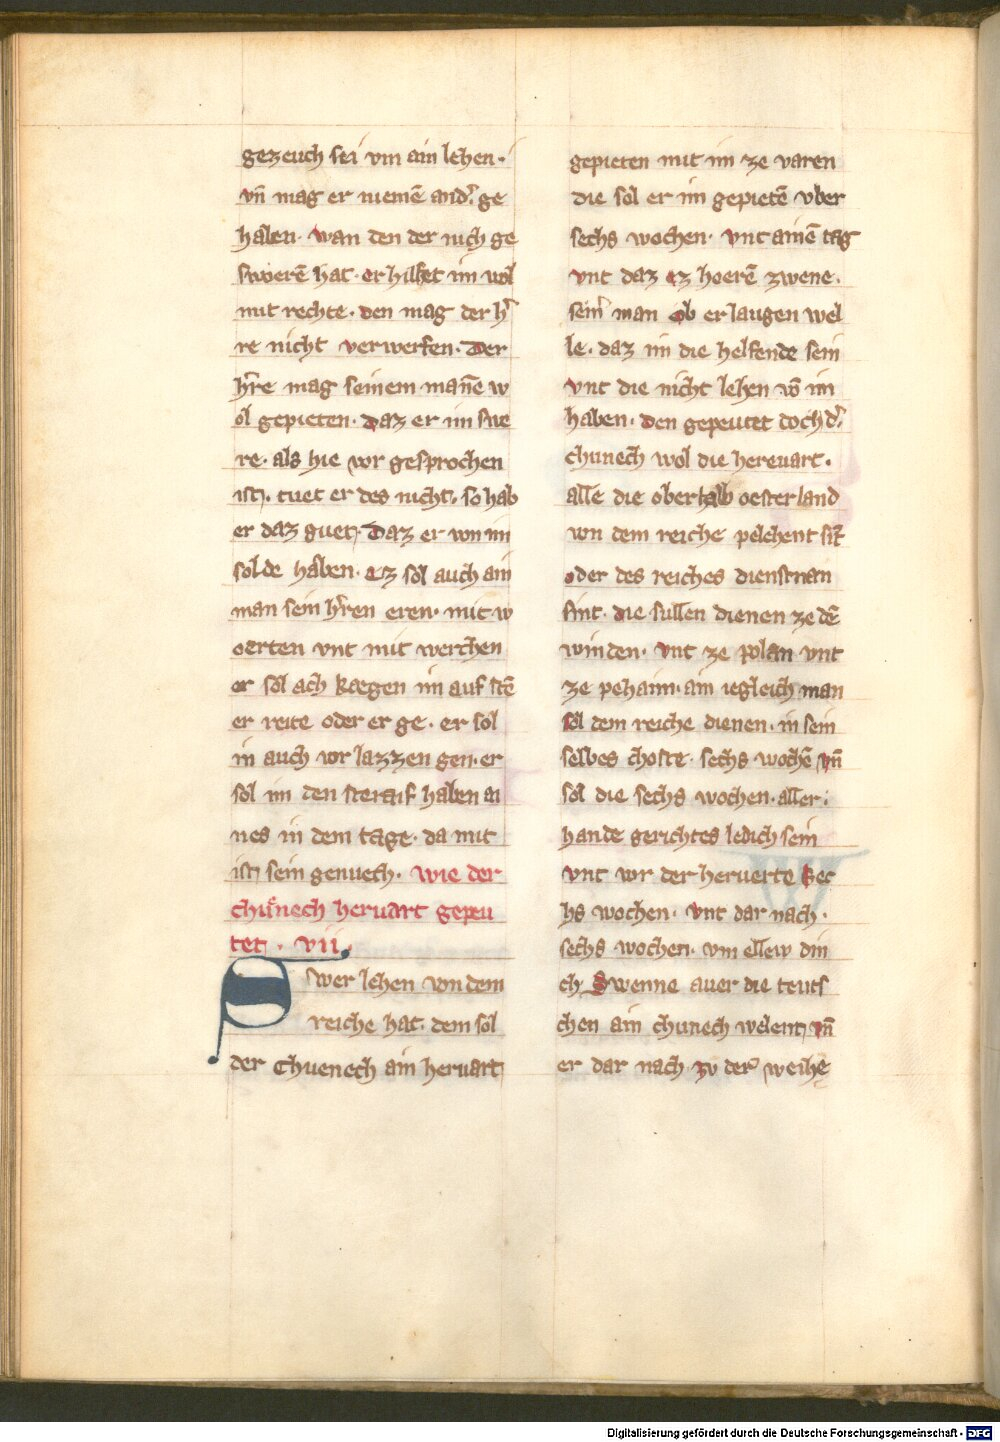 gezeuch sei vm ain lehen.
vn̄ mag er niemē and͛ ge
haben. wan den der nich ge
sworē hat. er hilfet im wol
mit rechte. den mag der h͛
re nicht verwerfen. Der
h͛re mag seinem man̄e w
ol gepieten. daz er im swe
re. als hie vor gesprochen
ist. tuet er des nicht. so hab
er daz guet. Daz er von im
solde haben. ez sol auch ain
man sein h͛ren eren. mit w
oerten vnt mit werchen
er sol ach kaegen im auf stē
er reite oder er ge. er sol
in auch vor lazzen gen. er
sol im den steraif haben ai
nes in dem tage. da mit
ist sein genuech. wie der
chuͤnech heruart gepeu
tet. vii.
Swer lehen von dem
reiche hat. dem sol
der Chuenech ain heruart
gepieten mit im ze varen
die sol er im gepietē vber
sechs wochen. vnt ainē tag
vnt daz ez hoerē zwene.
sein͛ man ob er laugen wel
le. daz im die helfende sein
vnt die nicht lehen vō im
haben. den gepeutet doch d͛
chunech wol die hereuart.
alle die oberhalb oesterland
von dem reiche pelehent sīt
oder des reiches dienstman
sint. die sullen dienen ze dē
winden. vnt ze polan vnt
ze pehaim. ain iegleich man
sol dem reiche dienen. in sein
selbes choste. sechs wochē vn̄
sol die sechs wochen. aller.
hande gerichtes ledich sein
vnt vor der heruerte sec
hs wochen. vnt dar nach.
sechs wochen. vm ellew din
ch. Swenne auer die teuts
chen ain chunech welent vn̄
er dar nach zv der weihe
Digitalisierung gefördert durch die Deutsche Forschungsgemeinschaft - DFG